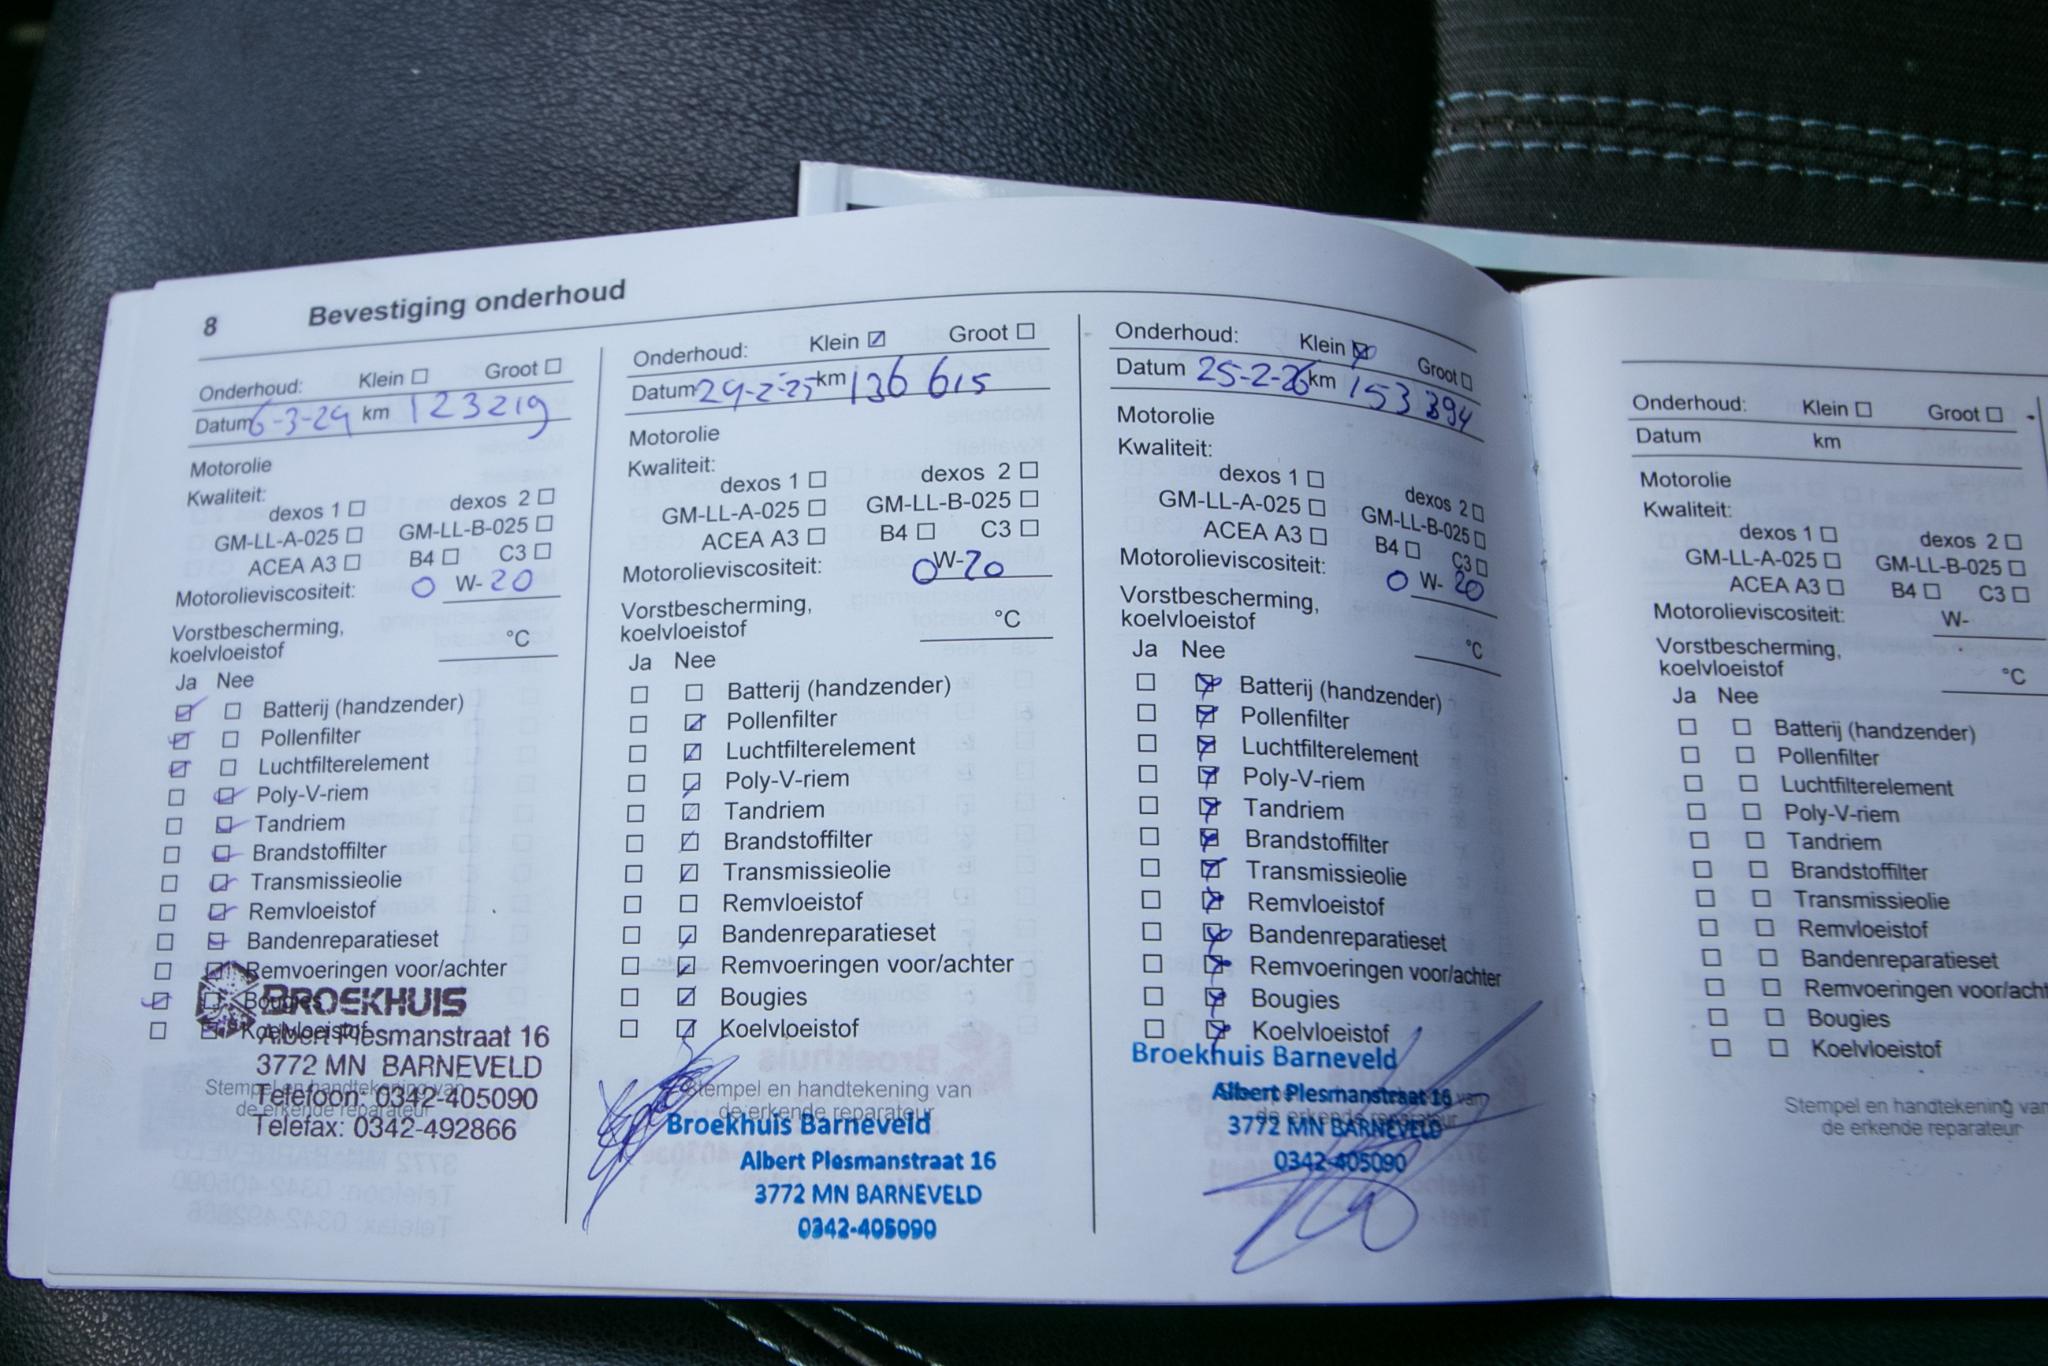 8 Bevestiging onderhoud
Onderhoud: Klein ☐ Groot ☐
Datum 6-3-24 km 123219
Motorolie
Kwaliteit:
dexos 1 ☐ dexos 2 ☐
GM-LL-A-025 ☐ GM-LL-B-025 ☐
ACEA A3 ☐ B4 ☐ C3 ☐
Motorolieviscositeit: 0 W-20
Vorstbescherming,
koelvloeistof °C
Ja Nee
☑ ☐ Batterij (handzender)
☑ ☐ Pollenfilter
☑ ☐ Luchtfilterelement
☐ ☑ Poly-V-riem
☐ ☑ Tandriem
☐ ☑ Brandstoffilter
☐ ☑ Transmissieolie
☐ ☑ Remvloeistof
☐ ☑ Bandenreparatieset
☐ ☑ Remvoeringen voor/achter
☑ ☐ Bougies
☐ ☑ Koelvloeistof
Stempel en handtekening van
de erkende reparateur
BROEKHUIS
Albert Plesmanstraat 16
3772 MN BARNEVELD
Telefoon: 0342-405090
Telefax: 0342-492866
Onderhoud: Klein ☑ Groot ☐
Datum 24-2-25 km 136 615
Motorolie
Kwaliteit:
dexos 1 ☐ dexos 2 ☐
GM-LL-A-025 ☐ GM-LL-B-025 ☐
ACEA A3 ☐ B4 ☐ C3 ☐
Motorolieviscositeit: 0W-20
Vorstbescherming,
koelvloeistof °C
Ja Nee
☐ ☐ Batterij (handzender)
☐ ☑ Pollenfilter
☐ ☑ Luchtfilterelement
☐ ☑ Poly-V-riem
☐ ☑ Tandriem
☐ ☑ Brandstoffilter
☐ ☑ Transmissieolie
☐ ☐ Remvloeistof
☐ ☑ Bandenreparatieset
☐ ☑ Remvoeringen voor/achter
☐ ☑ Bougies
☐ ☑ Koelvloeistof
Stempel en handtekening van
de erkende reparateur
Broekhuis Barneveld
Albert Plesmanstraat 16
3772 MN BARNEVELD
0342-405090
Onderhoud: Klein ☑ Groot ☐
Datum 25-2-26 km 153 394
Motorolie
Kwaliteit:
dexos 1 ☐ dexos 2 ☐
GM-LL-A-025 ☐ GM-LL-B-025 ☐
ACEA A3 ☐ B4 ☐ C3 ☐
Motorolieviscositeit: 0 W-20
Vorstbescherming,
koelvloeistof °C
Ja Nee
☐ ☑ Batterij (handzender)
☐ ☑ Pollenfilter
☐ ☑ Luchtfilterelement
☐ ☑ Poly-V-riem
☐ ☑ Tandriem
☐ ☑ Brandstoffilter
☐ ☑ Transmissieolie
☐ ☑ Remvloeistof
☐ ☑ Bandenreparatieset
☐ ☑ Remvoeringen voor/achter
☐ ☑ Bougies
☐ ☑ Koelvloeistof
Broekhuis Barneveld
Albert Plesmanstraat 16 van
de erkende reparateur
3772 MN BARNEVELD
0342-405090
Onderhoud: Klein ☐ Groot ☐
Datum km
Motorolie
Kwaliteit:
dexos 1 ☐ dexos 2 ☐
GM-LL-A-025 ☐ GM-LL-B-025 ☐
ACEA A3 ☐ B4 ☐ C3 ☐
Motorolieviscositeit: W-
Vorstbescherming,
koelvloeistof °C
Ja Nee
☐ ☐ Batterij (handzender)
☐ ☐ Pollenfilter
☐ ☐ Luchtfilterelement
☐ ☐ Poly-V-riem
☐ ☐ Tandriem
☐ ☐ Brandstoffilter
☐ ☐ Transmissieolie
☐ ☐ Remvloeistof
☐ ☐ Bandenreparatieset
☐ ☐ Remvoeringen voor/acht
☐ ☐ Bougies
☐ ☐ Koelvloeistof
Stempel en handtekening van
de erkende reparateur